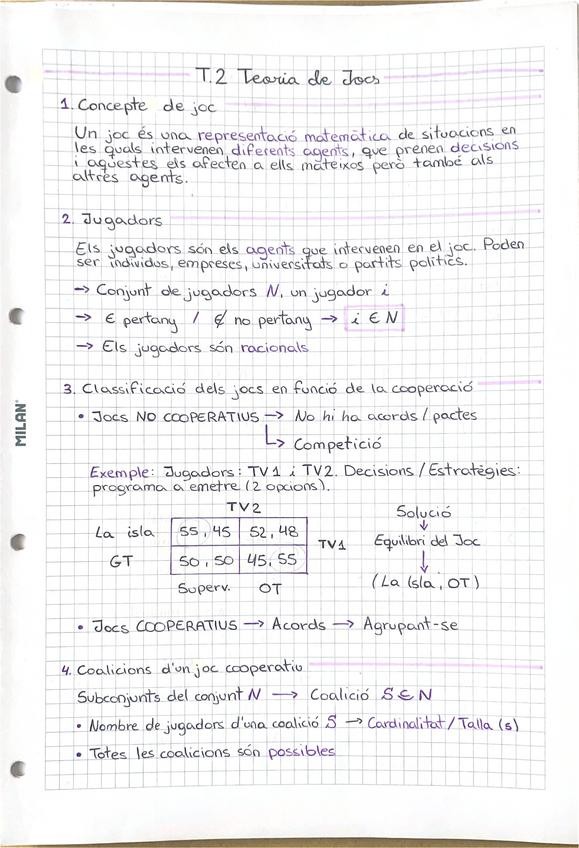 T.2 Teoria de Jocs
1. Concepte de joc
Un joc és una representació matemàtica de situacions en
les quals intervenen diferents agents, que prenen decisions
i aquestes els afecten a ells mateixos però també als
altres agents.
2. Jugadors
Els jugadors són els agents que intervenen en el joc. Poden
ser individus, empreses, universitats o partits polítics.
→ Conjunt de jugadors N, un jugador i
→ ∈ pertany / ∉ no pertany → i ∈ N
→ Els jugadors són racionals
3. Classificació dels jocs en funció de la cooperació
• Jocs NO COOPERATIUS → No hi ha acords / pactes
↳ Competició
Exemple: Jugadors: TV1 i TV2. Decisions / Estratègies:
programa a emetre (2 opcions).
TV2
La isla 55, 45 52, 48
GT 50, 50 45, 55
TV1
Superv. OT
Solució
↓
Equilibri del Joc
↓
(La Isla, OT)
• Jocs COOPERATIUS → Acords → Agrupant-se
4. Coalicions d'un joc cooperatiu
Subconjunts del conjunt N → Coalició S ∈ N
• Nombre de jugadors d'una coalició S → Cardinalitat / Talla (s)
• Totes les coalicions són possibles
MILAN®